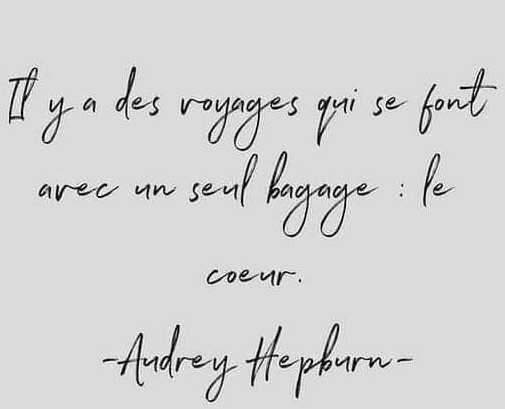 Il y a des voyages qui se font
avec un seul bagage : le
coeur.
-Audrey Hepburn-